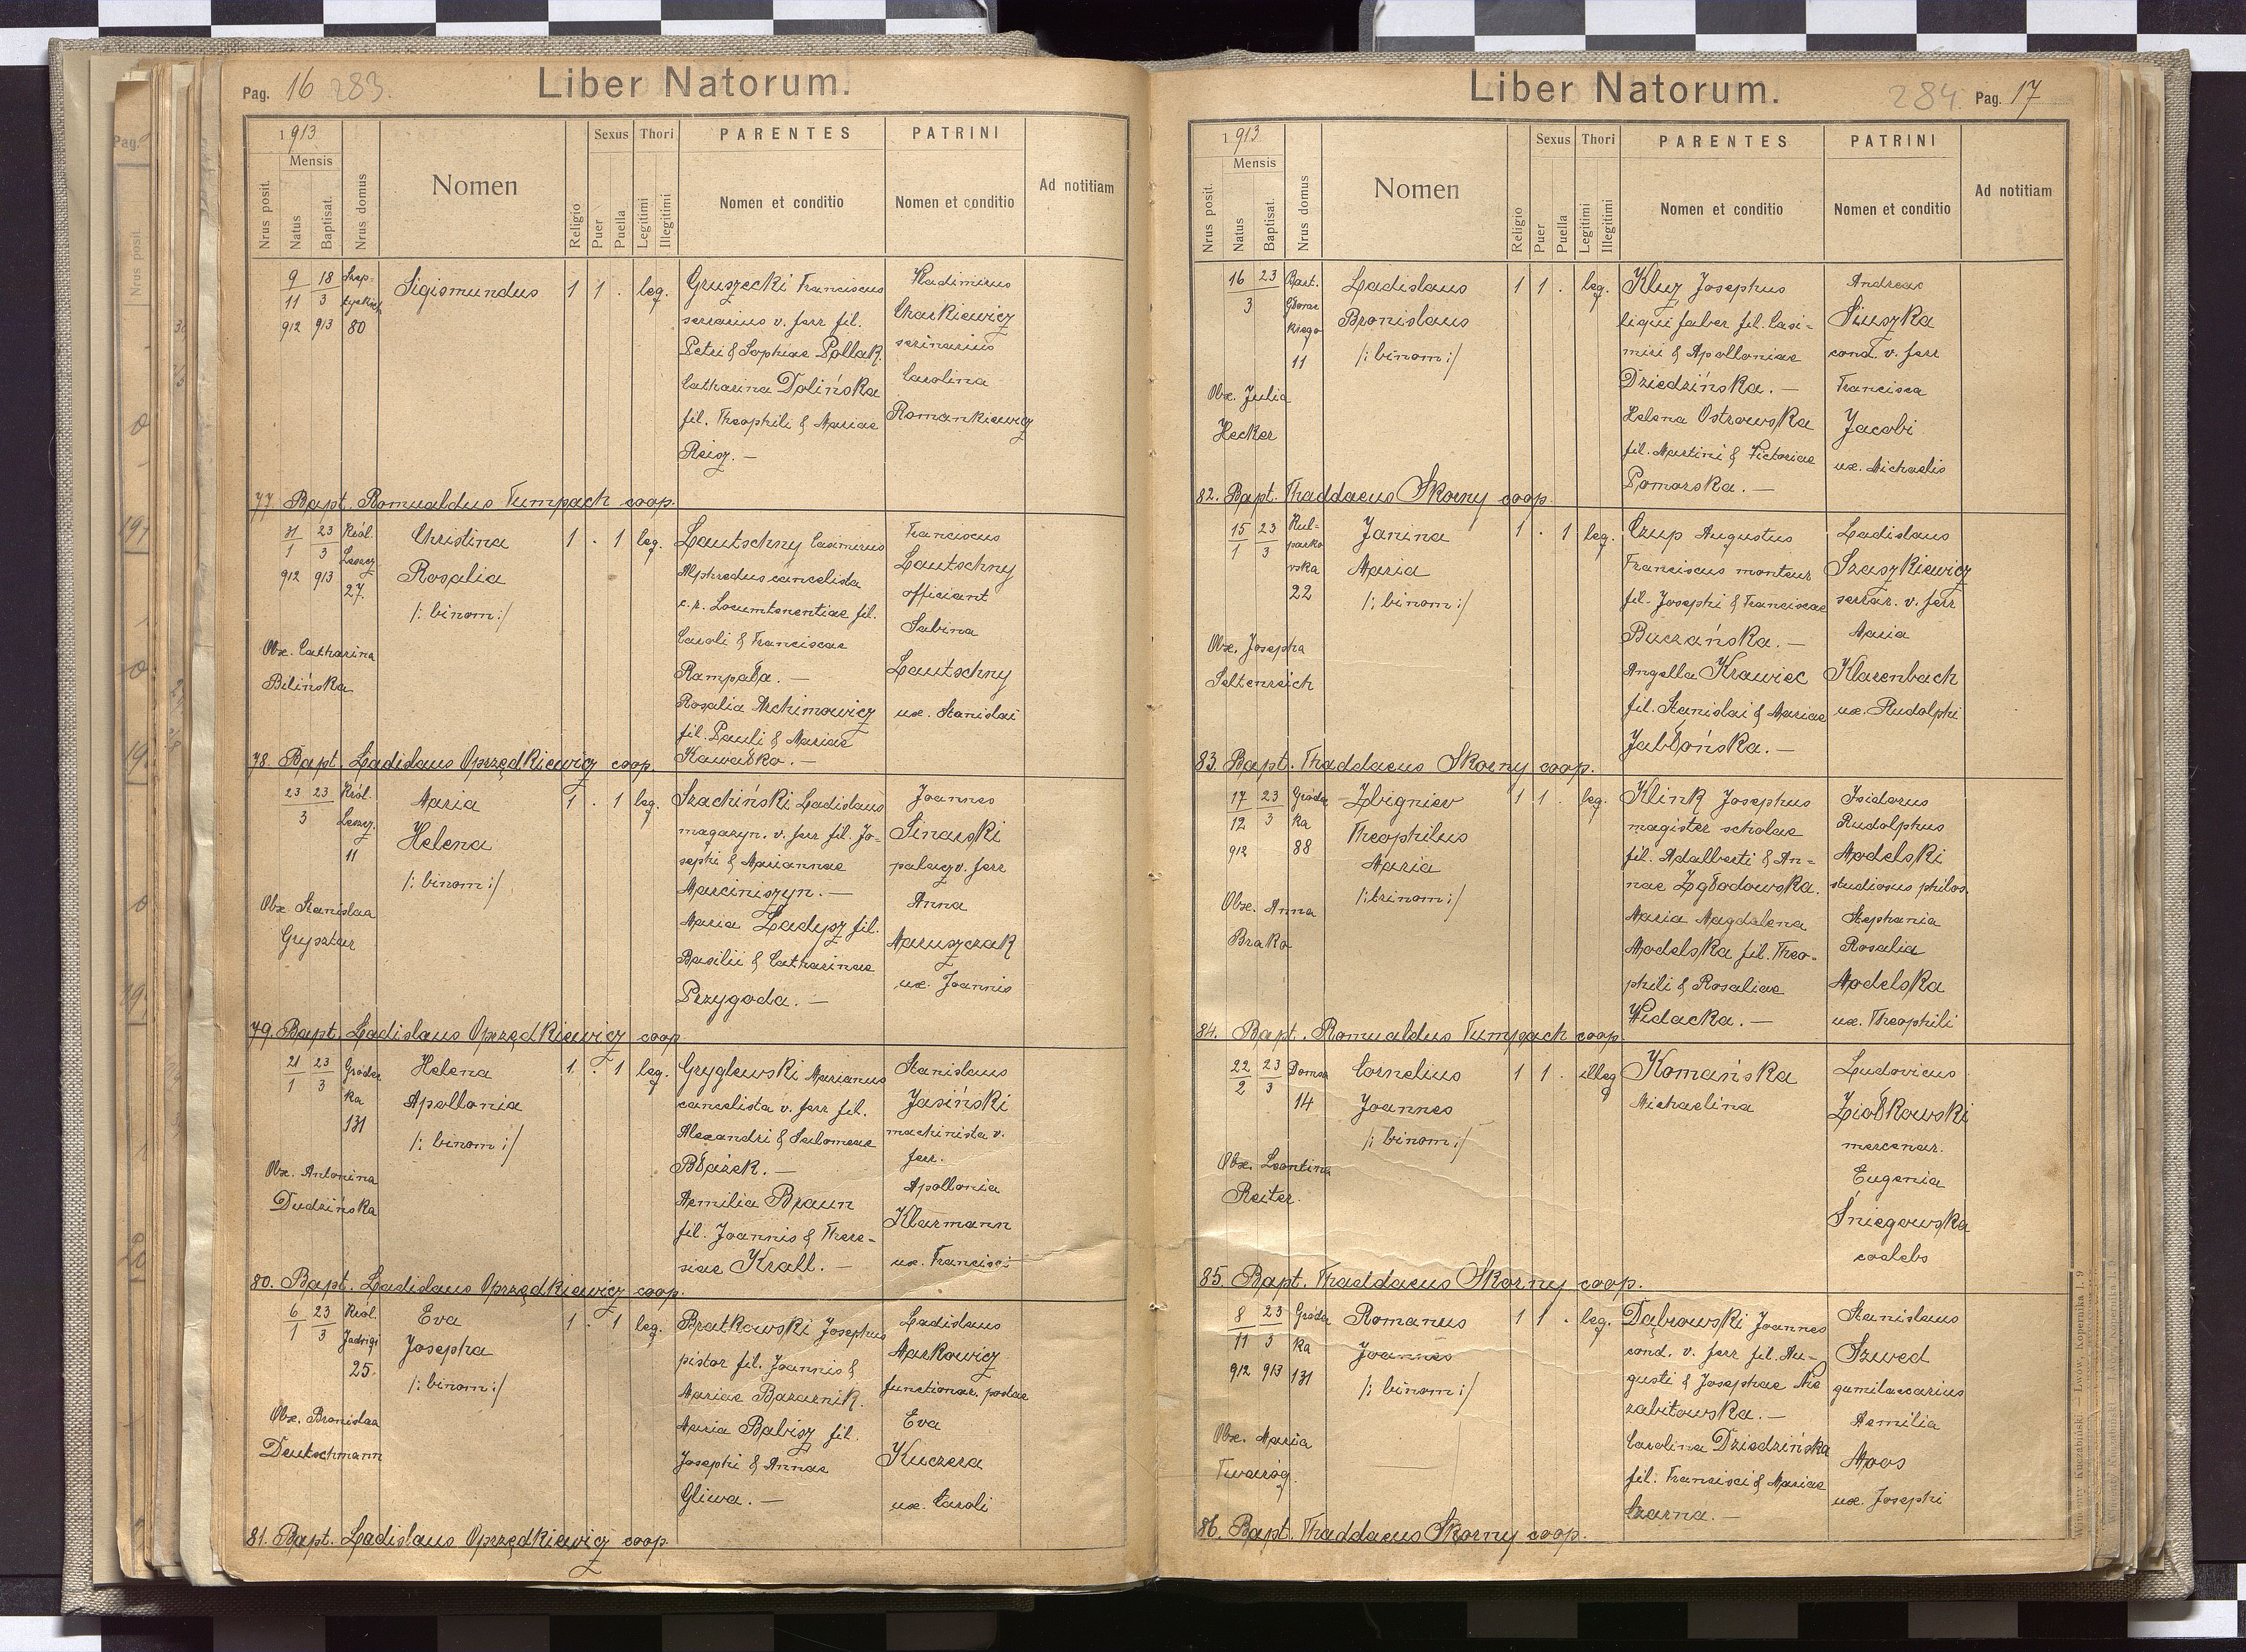 Pag. 16 283.
Liber Natorum.
1913
Nrus posit.
Mensis
Natus
Baptisat.
Nrus domus
Nomen
Religio
Sexus
Puer
Puella
Thori
Legitimi
Illegitimi
PARENTES
Nomen et conditio
PATRINI
Nomen et conditio
Ad notitiam
9 18
11 3
912 913 80
Sigismundus
1 1 . leg.
Gruszecki Franciscus
serrarius v. ferr fil.
Petri & Sophiae Pollak.
Catharina Dolińska
fil. Theophili & Mariae
Reisz. —
Vladimirus
Charkiewicz
scriniarius
Carolina
Romankiewicz
77. Bapt. Romualdus Tumpach coop.
31 23 Król.
1 3 Leszcz
912 913 27.
Christina
Rosalia
/: binom :/
1 . 1 leg.
Obx. Catharina
Bilińska
Lautschny Casimirus
Alphredus cancelista
c. r. Locumtenentiae fil.
Caroli & Franciscae
Rampała. —
Rosalia Archimowicz
fil. Pauli & Mariae
Kawałko. —
Franciscus
Lautschny
officiant
Sabina
Lautschny
ux. Stanislai
78. Bapt. Ladislaus Oprzędkiewicz coop.
23 23 Król.
3 Leszcz.
11
Maria
Helena
/: binom :/
1 . 1 leg.
Obx Stanislaa
Grysztar
Szachiński Ladislaus
magazyn. v. ferr fil. Jo-
sephi & Mariannae
Marciniszyn. —
Maria Ładysz fil.
Basilii & Catharinae
Przygoda. —
Joannes
Sinarski
palacz v. ferr
Anna
Maruszczak
ux. Joannis
79. Bapt. Ladislaus Oprzędkiewicz coop.
21 23 Gródec
1 3 ka
131
Helena
Apollonia
/: binom :/
1 . 1 leg.
Obx. Antonina
Dudzińska
Gryglewski Marianus
cancelista v. ferr fil.
Alexandri & Salomeae
Błażek. —
Aemilia Braun
fil. Joannis & There-
siae Krall. —
Stanislaus
Jasiński
machinista v.
ferr.
Apollonia
Klarmann
ux. Francisci
80. Bapt. Ladislaus Oprzędkiewicz coop.
6 23 Król.
1 3 Jadwigi
25.
Eva
Josepha
/: binom :/
1 . 1 leg.
Obx. Bronislaa
Deutschmann
Bratkowski Josephus
pistor fil. Joannis &
Mariae Bazarnik.
Maria Babisz fil.
Josephi & Annae
Gliwa. —
Ladislaus
Markowicz
functionar. postae
Eva
Kuczera
ux. Caroli
81. Bapt. Ladislaus Oprzędkiewicz coop.
Liber Natorum.
284. Pag. 17
1913
Nrus posit.
Mensis
Natus
Baptisat.
Nrus domus
Nomen
Religio
Sexus
Puer
Puella
Thori
Legitimi
Illegitimi
PARENTES
Nomen et conditio
PATRINI
Nomen et conditio
Ad notitiam
16 23 Bart.
3 Głowac
kiego
11
Ladislaus
Bronislaus
/: binom :/
1 1 . leg.
Obx. Julia
Hecker
Kluz Josephus
ligni faber fil. Casi-
miri & Apolloniae
Dziedzińska. —
Helena Ostrowska
fil. Martini & Victoriae
Pomorska. —
Andreas
Siuszka
cond. v. ferr
Francisca
Jacobi
ux. Michaelis
82. Bapt. Thaddaeus Skorny coop.
15 23 Kul-
1 3 parko
wska
22
Janina
Maria
/: binom :/
1 . 1 leg.
Obx. Josepha
Seltenreich
Czup Augustus
Franciscus monteur
fil. Josephi & Franciscae
Buczańska. —
Angella Krawiec
fil. Stanislai & Mariae
Jabłońska. —
Ladislaus
Szaszkiewicz
serrar. v. ferr
Maria
Klarenbach
ux. Rudolphi
83. Bapt. Thaddaeus Skorny coop.
17 23 Gródec
12 3 ka
912 88
Zbigniew
Theophilus
Maria
/: trinom :/
1 1 . leg.
Obx. Anna
Brako
Klink Josephus
magister scholae
fil. Adalberti & An-
nae Zgłodowska.
Maria Magdalena
Modelska fil. Theo-
phili & Rosaliae
Widacka. —
Isidorus
Rudolphus
Modelski
studiosus philos.
Stephania
Rosalia
Modelska
ux. Theophili
84. Bapt. Romualdus Tumpach coop.
22 23 Domsa
2 3 14
Cornelius
Joannes
/: binom :/
1 1 . illeg
Obx. Leontina
Reiter.
Komańska
Michaelina
Ludovicus
Ziołkowski
mercenar.
Eugenia
Śniegowska
coelebs
85. Bapt. Thaddaeus Skorny coop.
8 23 Gródec
11 3 ka
912 913 131
Romanus
Joannes
/: binom :/
1 1 . leg.
Obx. Maria
Twaróg.
Dąbrowski Joannes
cond. v. ferr fil. Au-
gusti & Josephae Nie
zabitowska. —
Carolina Dziedzińska
fil. Francisci & Mariae
Czarna. —
Stanislaus
Szwed
gumilascarius
Aemilia
Moos
ux. Josephi
86. Bapt. Thaddaeus Skorny coop.
Wincenty Kuczabiński — Lwów, Kopernika 1. 9